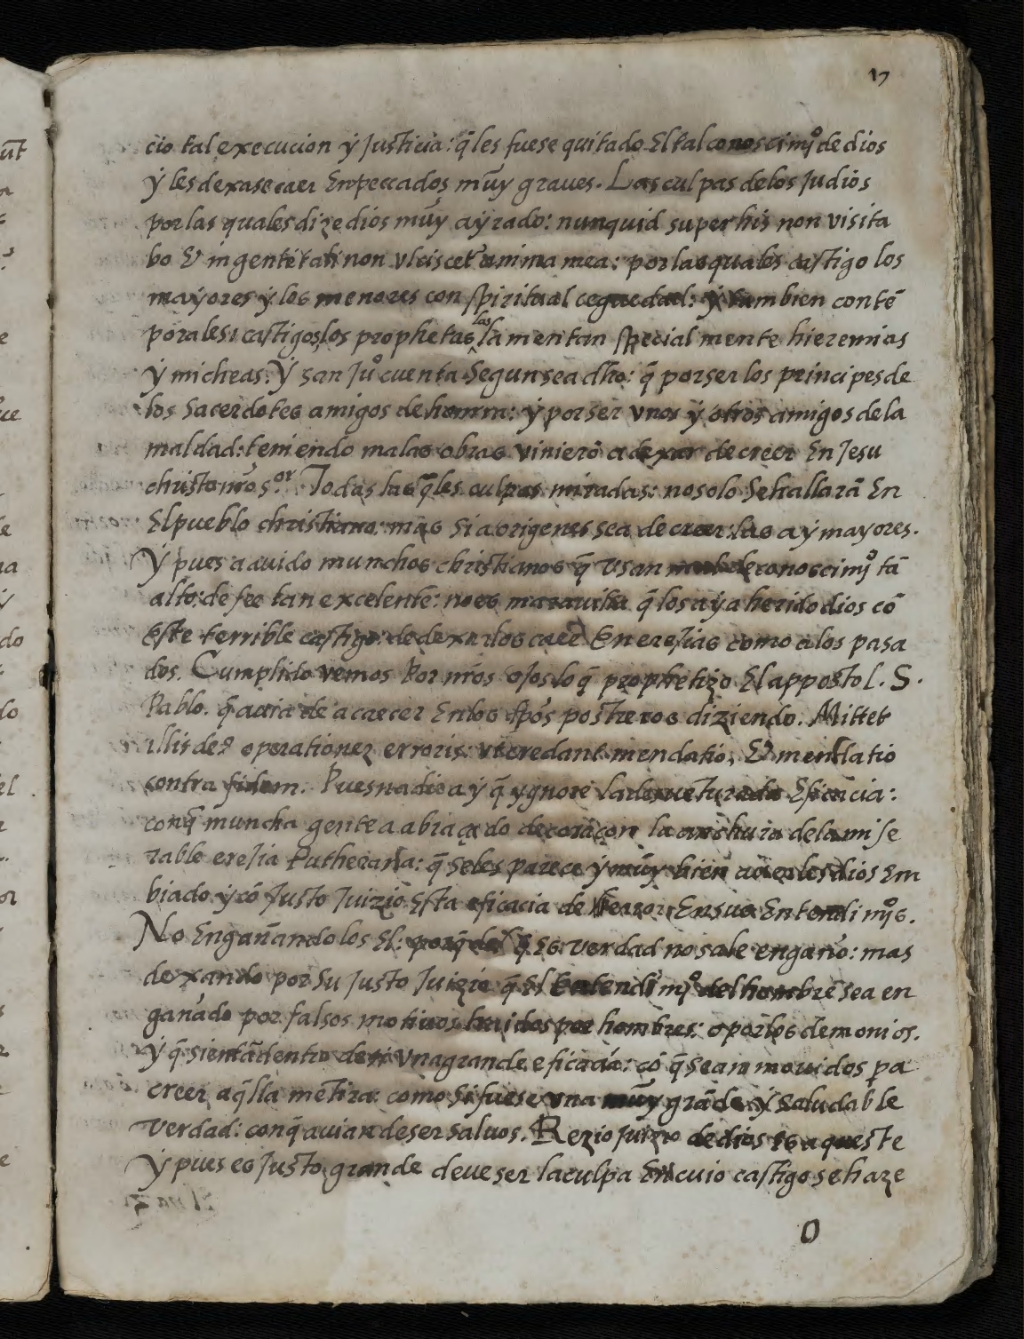 17
cio tal execucion ÿ Justicia: q̃ les fuese quitado El tal conoscimj̊ de dios
ÿ les dexase caer En peccados mũy graues. Las culpas de los Judios
por las quales dize dios mũy aÿrado: nunquid super his non visita
bo & in gente tali non vlciscet᷑ anima mea: por las quales castigo los
mayores ÿ los menores con spiritual ceguedad: ÿ tambien con tẽ
porales castigos, los prophetas las lamentan special mente hieremias
ÿ micheas. Ÿ san Jů cuenta Segun sea dh̃o: q̃ por ser los principes de
los Sacerdotes amigos de honrra: ÿ por ser vnos ÿ otros amigos de la
maldad: teniendo malas obras vinierõ a dexar de creer En Jesu
christo nr̃o s.or Todas las q̃les culpas miradas: no solo Se hallarã En
El pueblo christiano: mas Si a origenes sea de creer: las aÿ mayores.
Ÿ pues a auido munchos christianos q̃ vsan mal de conoscimj̊ tã
alto: de fee tan excelente: no es marauilla q̃ los aÿa herido dios cõ
este terrible castigo: de dexarlos caer En eresias como a los pasa
dos. Cumplido vemos Por nr̃os ojos lo q̃ prophetizo El appostol. S.
Pablo. q̃ auia de acaecer En los tp̃os postreros diziendo. Mittet
illis de9 operationez erroris: vt credant mendatio, & mendatio
contra fidem. Pues nadie aÿ q̃ ygnore la desuẽturada Eficacia:
con q̃ muncha gente a abraçado de coraçon la anchura de la mise
rable eresia Lutherana: q̃ se les parece ÿ mũy bien auerles dios Em
biado ÿ cõ Justo Juizio Esta eficacia de error En sus Entendimj̊s.
No Engañando los El: porq̃ del q̃ es verdad no sale engaño: mas
dexando por Su Justo Juizio q̃ El Entendimj̊ del hombre sea en
gañado por falsos motiuos traidos por hombres: o por los demonios.
ÿ q̃ sientã dentro de si vna grande eficacia: cõ q̃ sean mouidos pa
creer aq̃lla mẽtira: como si fuese vna mũy grãde ÿ Saludable
verdad: con q̃ auian de ser saluos. Rezio juizio de dios es aqueste
Ÿ pues es Justo, grande deue ser la culpa En cuio castigo se haze
O